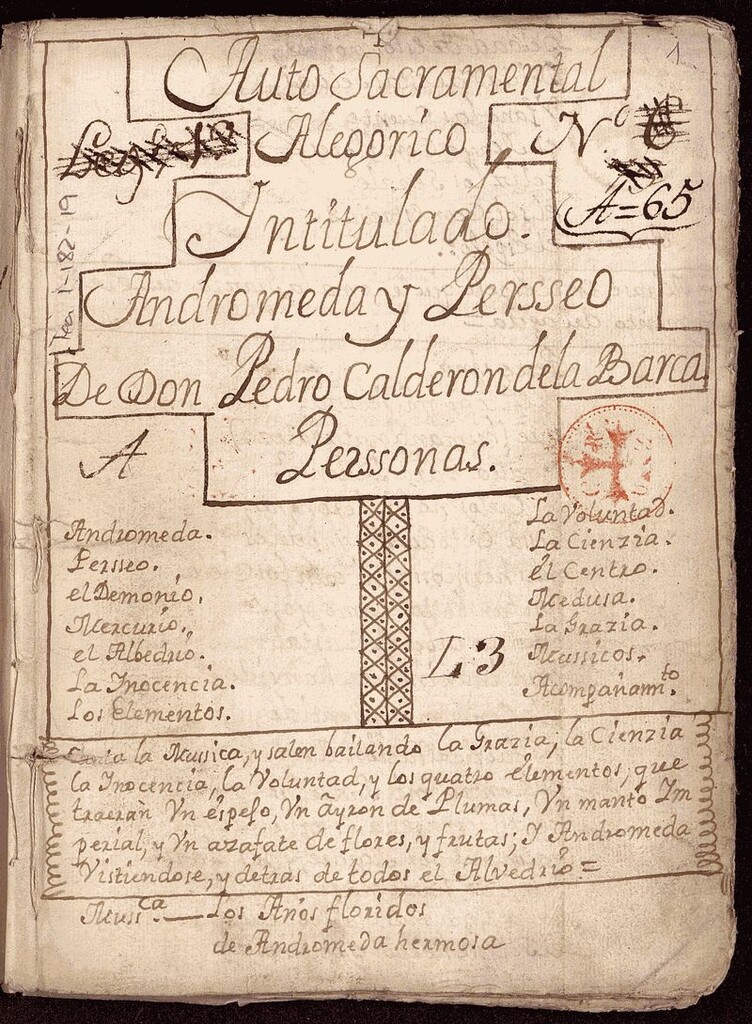 1
Auto Sacramental
Alegorico
N.º 6
A=65
Tea 1-182-19
Intitulado.
Andromeda y Persseo
De Don Pedro Calderon dela Barca
A
Perssonas.
Andromeda.
Persseo.
el Demonio.
Mercurio.
el Albedrio.
La Inocencia.
Los Elementos.
La Voluntad.
La Cienzia.
el Centro.
Medusa.
La Grazia.
Mussicos.
Acompañam.to
L3
Canta la Mussica, y salen bailando la Grazia, la Cienzia
la Inocencia, la Voluntad, y los quatro elementos, que
traeran Vn espejo, Vn ayron de Plumas, Vn manto Im
perial, y Vn azafate de flores, y frutas; Y Andromeda
Vistiendose, y detras de todos el Alvedrio=
Muss.ca — Los Años floridos
de Andromeda hermosa